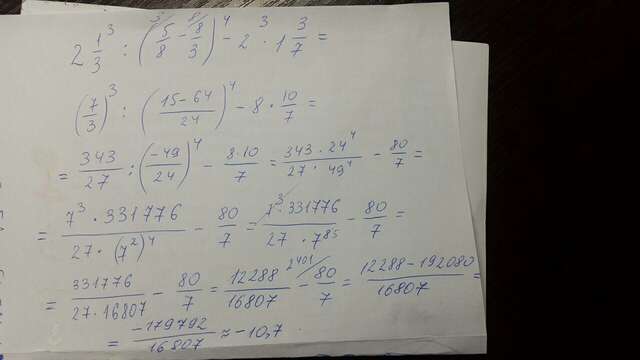 2 1/3³ : (5/8 - 8/3)⁴ - 2³ · 1 3/7 =
(7/3)³ : ((15-64)/24)⁴ - 8 · 10/7 =
= 343/27 : (-49/24)⁴ - 8·10/7 = 343·24⁴/27·49⁴ - 80/7 =
= 7³·331776/27·(7²)⁴ - 80/7 = 7³·331776/27·7⁸⁵ - 80/7 =
= 331776/27·16807 - 80/7 = 12288/16807 - 80/7 (2401) = 12288-192080/16807 =
= -179792/16807 ≈ -10,7